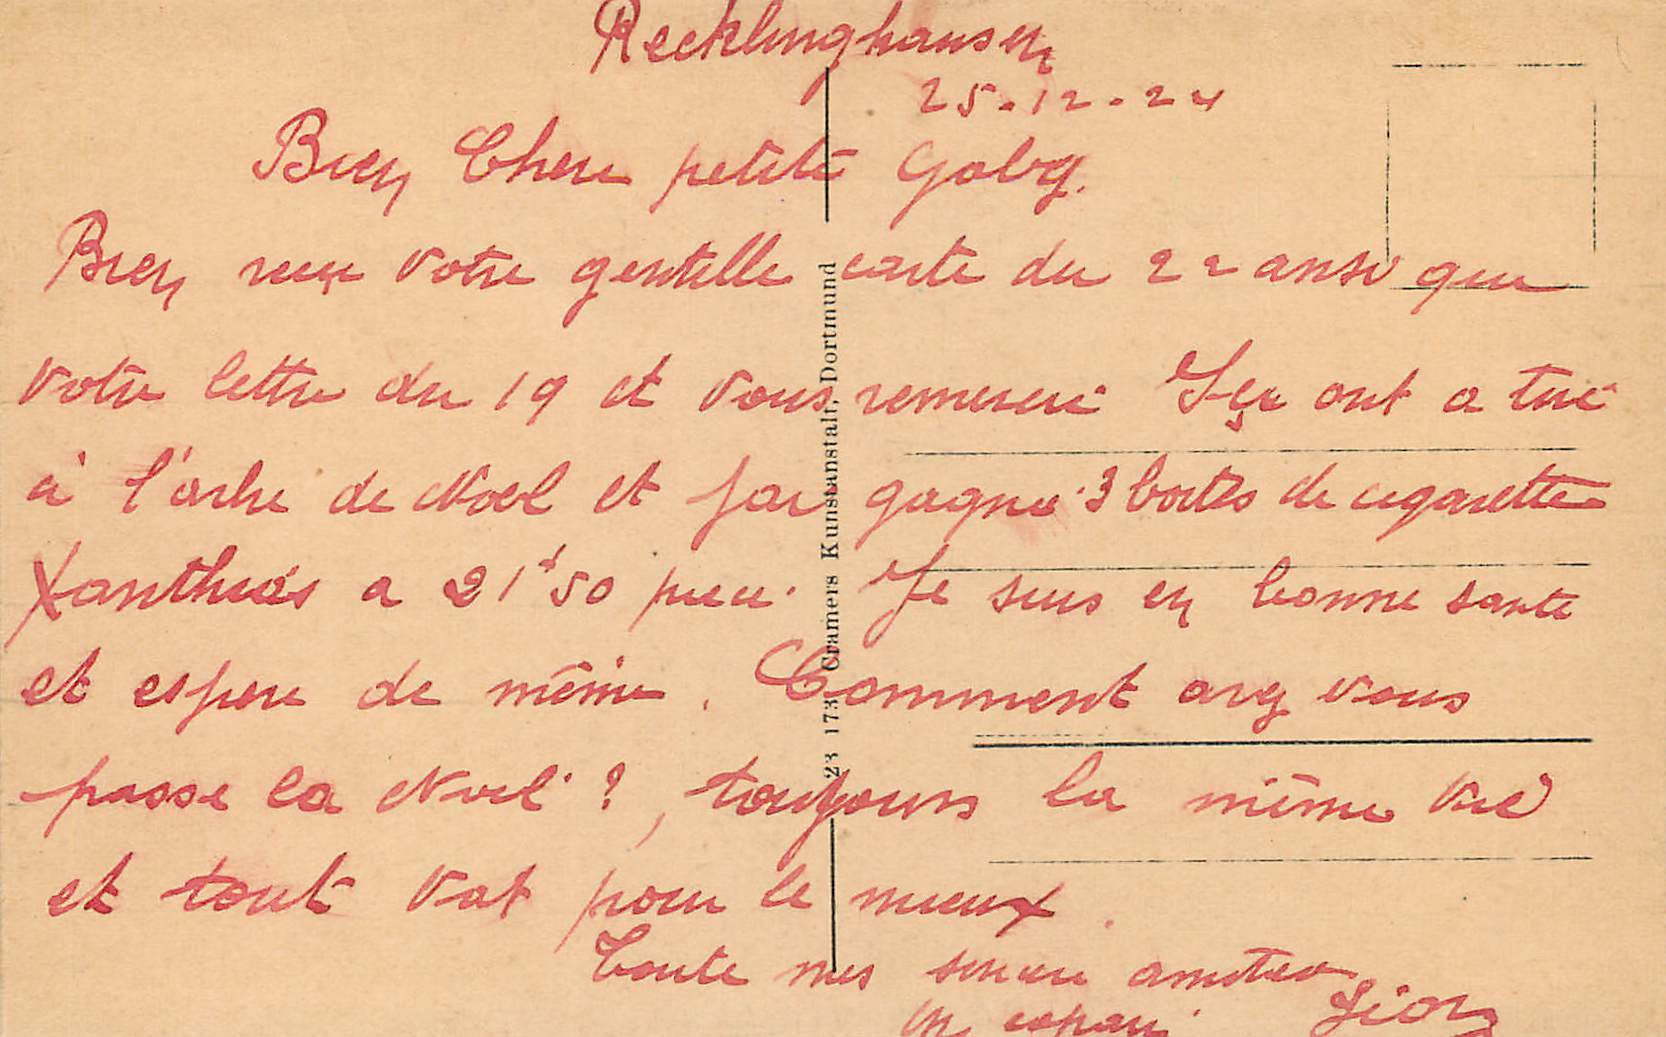 Recklinghausen
25-12-24
Bien Chere petite Gaby.
Bien reçu votre gentille carte du 22 ansi que
votre lettre du 19 et vous remerci Içi ont a tiré
à l'arbre de Noel et jai gagné 3 boites de cigarette
Xanthias a 21f50 piece. Je suis en bonne sante
et espere de même. Comment avez vous
passe la Noel ? , toujours la même vie
et tout vat pour le mieux.
Toute mes sincere amitier
un copain
23 173 Cramers Kunstanstalt, Dortmund